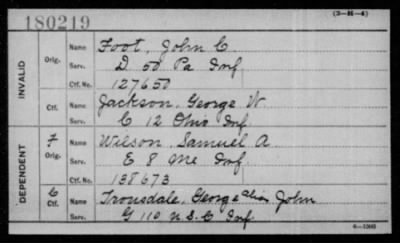 180219
(3-H-4)
INVALID
Orig.
Name Foot, John C
Serv. D 50 Pa Inf
Ctf. No. 127650
Ctf.
Name Jackson, George W.
Serv. C 12 Ohio Inf.
DEPENDENT
F
Orig.
Name Wilson, Samuel A
Serv. E 8 Me Inf.
Ctf. No. 138673
C
Ctf.
Name Trousdale, George alias John
Serv. G 110 U.S.C Inf